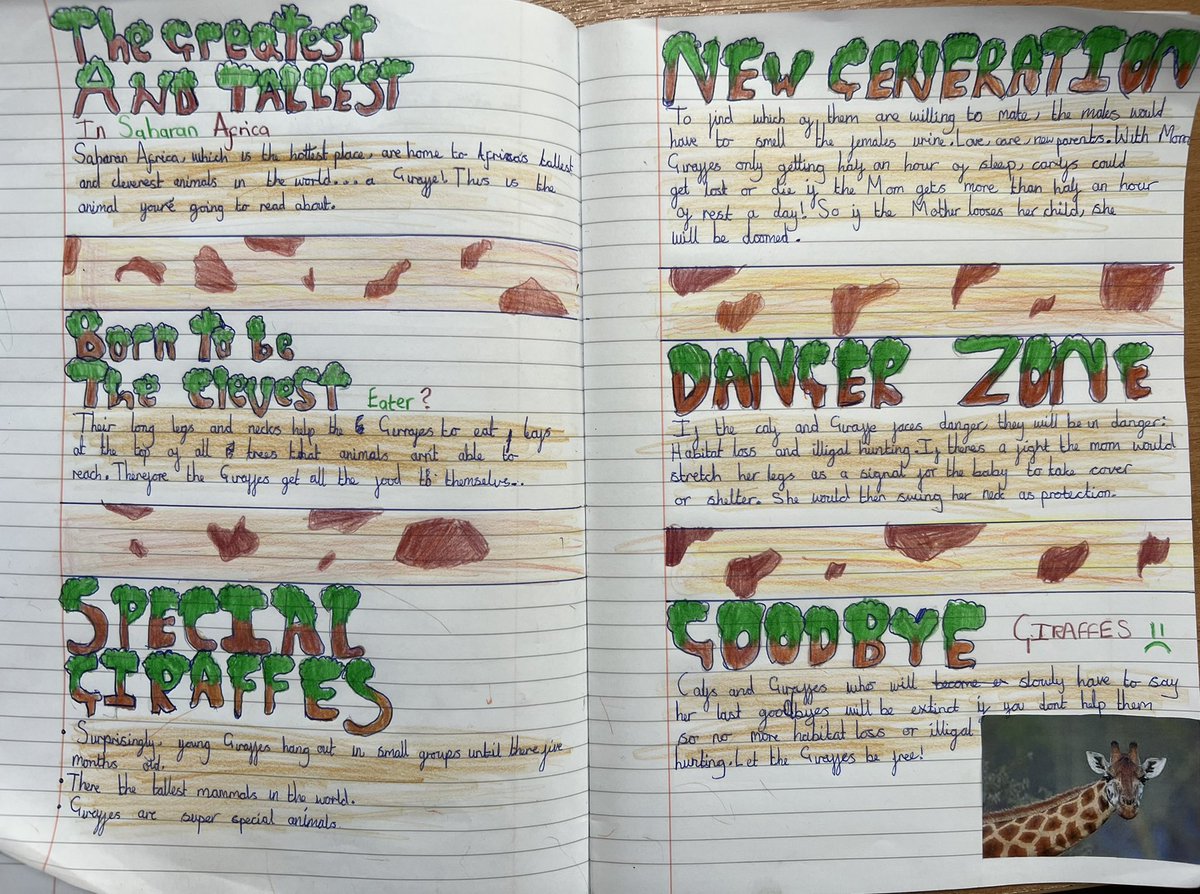 The Greatest
And Tallest
In Saharan Africa
Saharan Africa, which is the hottest place, are home to Africa's tallest
and cleverest animals in the world... a Giraffe! This is the
animal your'e going to read about.
Born To be
The clevest Eater?
Their long legs and necks help the Girrafes to eat leafs
at the top of all trees that animals arn't able to
reach. Therefore the Giraffes get all the food to themselvs..
Special
Giraffes
Surprisingly, young Giraffes hang out in small groups until there five
months old.
There the tallest mammals in the world.
Giraffes are super special animals.
New Generation
To find which of them are willing to mate, the males would
have to smell the females urine. Love, care, new parents. With Mom
Giraffes only getting half an hour of sleep, calfs could
get lost or die if the Mom gets more than half an hour
of rest a day! So if the Mother looses her child, she
will be doomed.
Danger Zone
If the calf and Giraffe faces danger they will be in danger:
Habitat loss and illigal hunting. If, theres a fight, the mom would
stretch her legs as a signal for the baby to take cover
or shelter. She would then swing her neck as protection.
Goodbye GIRAFFES
Calfs and Giraffes who will slowly have to say
her last goodbyes will be extinct if you dont help them
so no more habitat loss or illigal
hunting. Let the Giraffes be free!